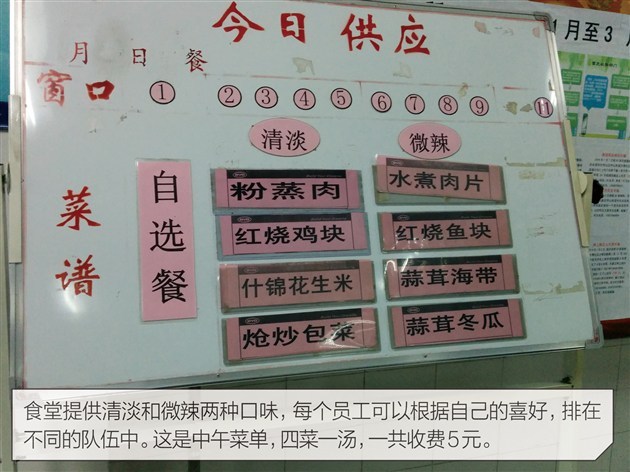 今日供应
月 日 餐
窗口 ① ② ③ ④ ⑤ ⑥ ⑦ ⑧ ⑨ ⑪
1月至3
清淡 微辣
菜谱
自选餐
粉蒸肉 水煮肉片
红烧鸡块 红烧鱼块
什锦花生米 蒜茸海带
炝炒包菜 蒜茸冬瓜
食堂提供清淡和微辣两种口味，每个员工可以根据自己的喜好，排在
不同的队伍中。这是中午菜单，四菜一汤，一共收费5元。